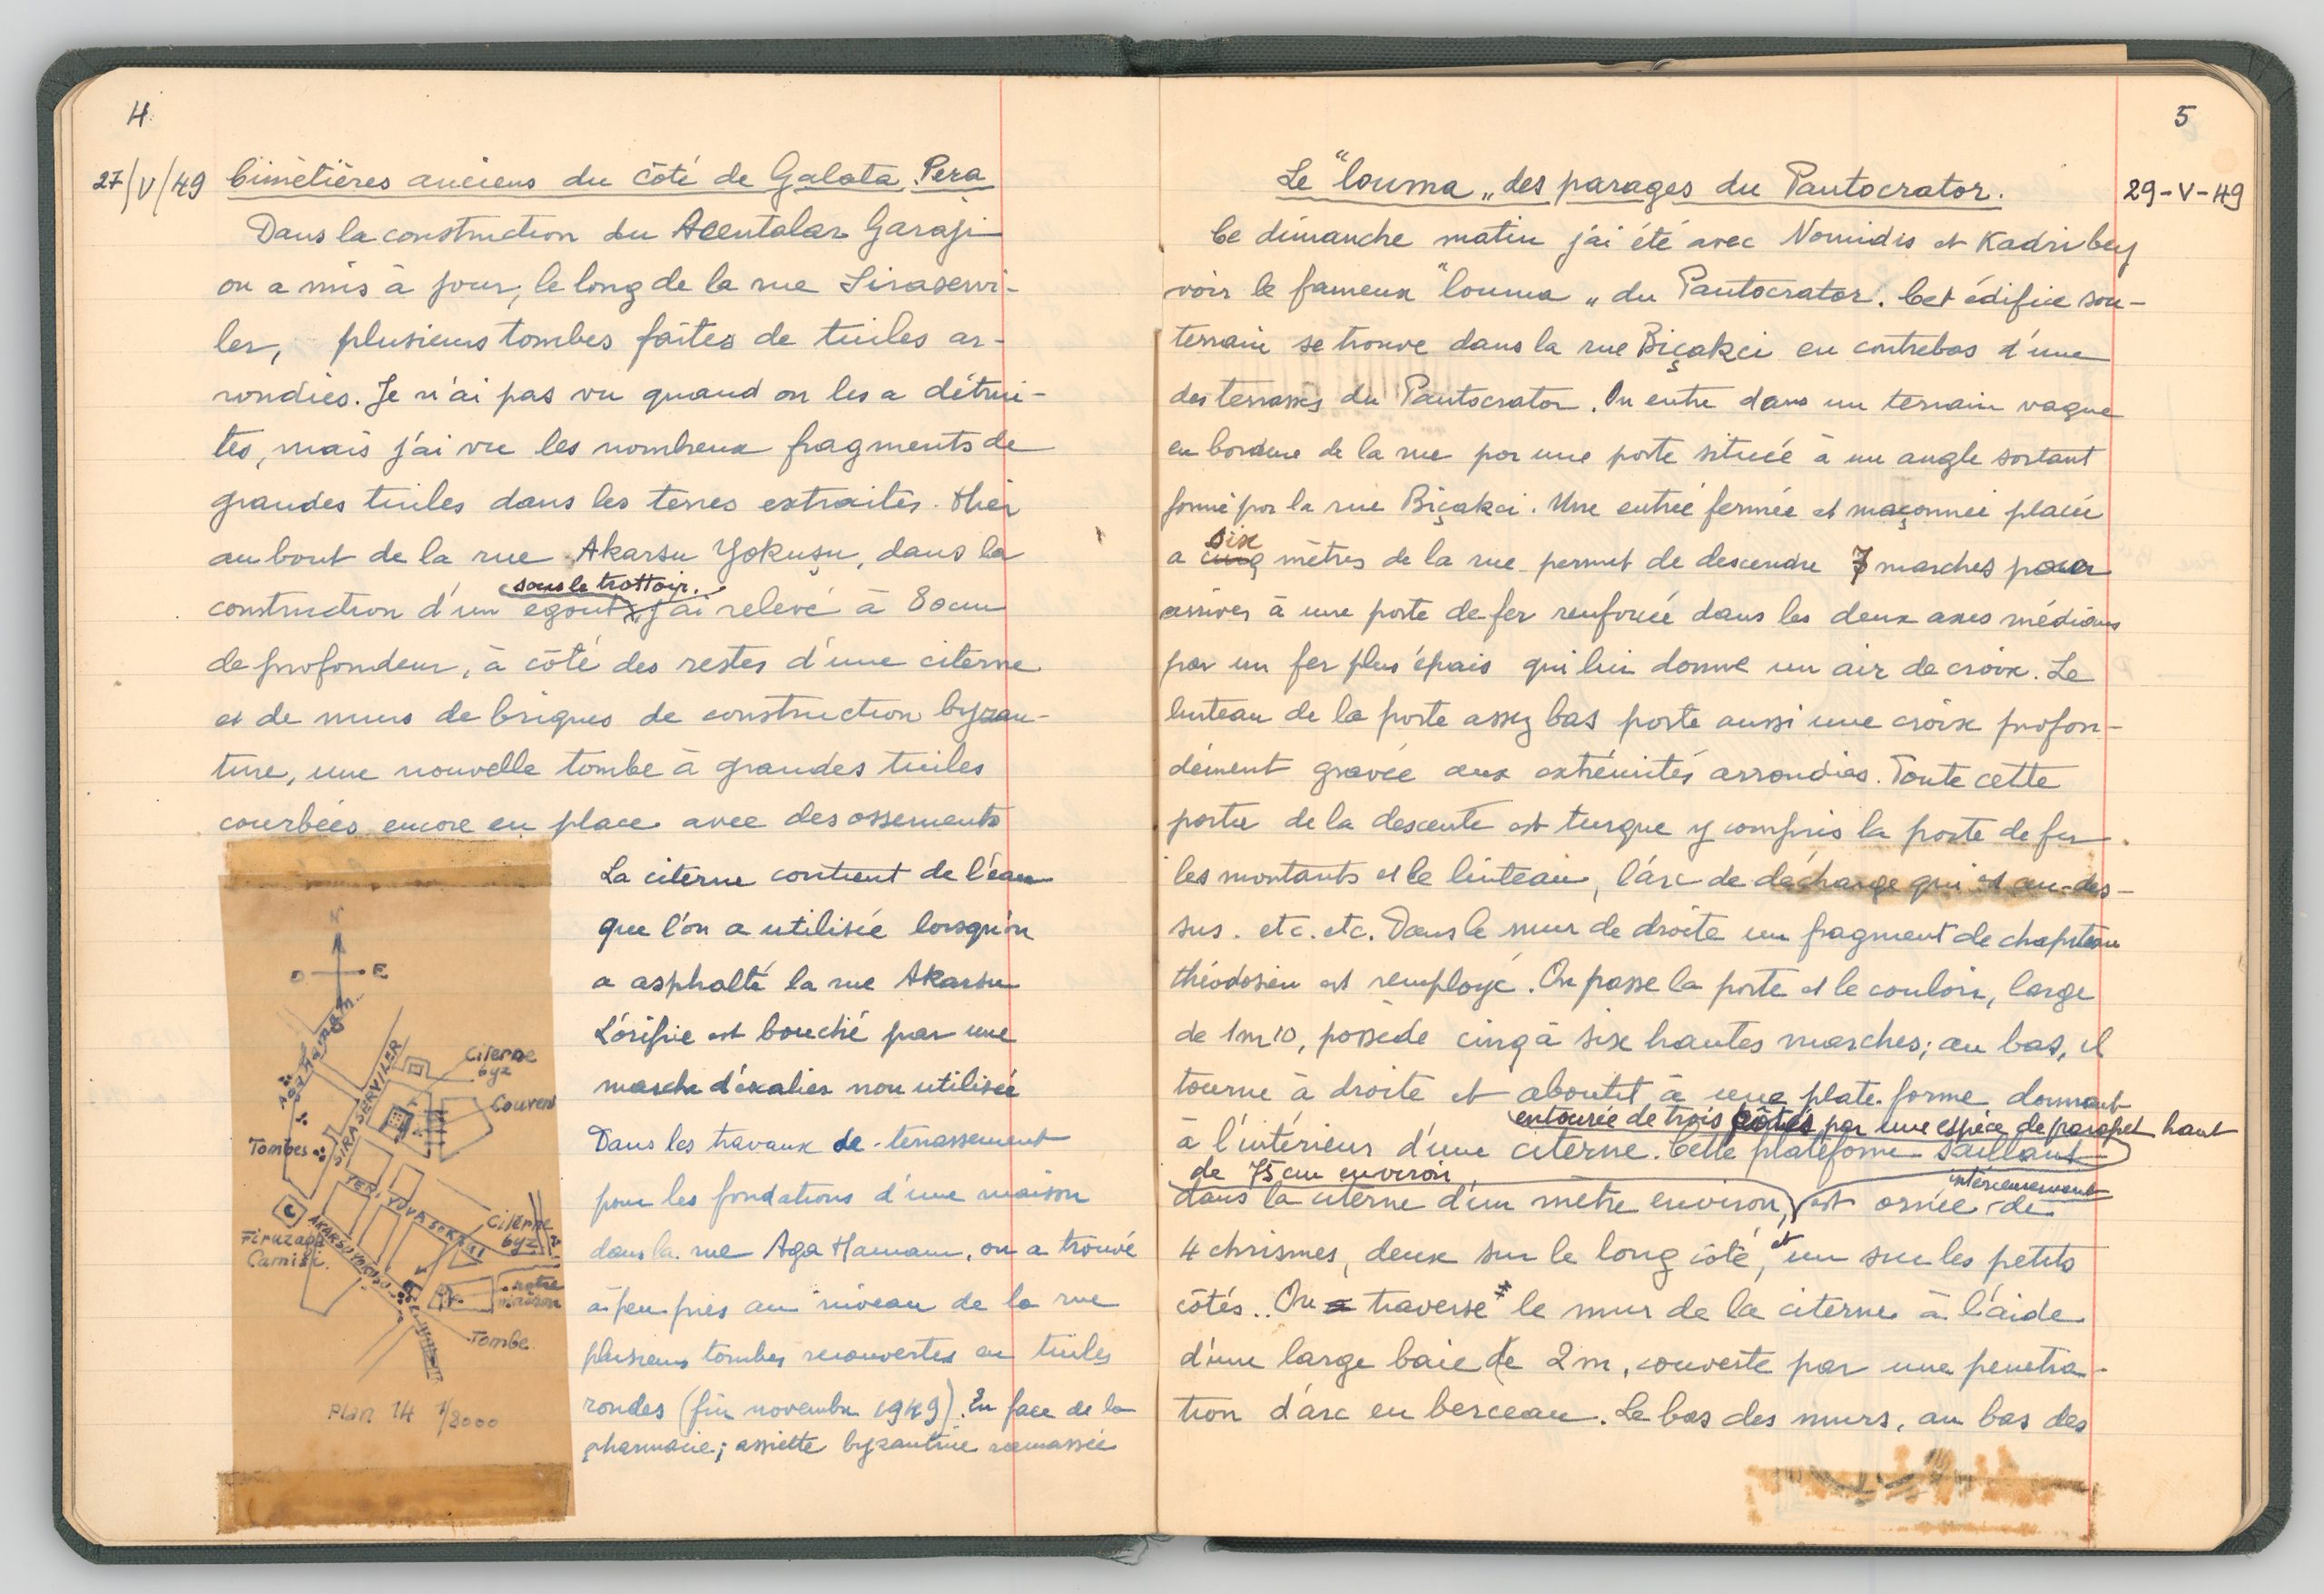 4
27/V/49 Cimetières anciens du côté de Galata Pera
Dans la construction du Acentalar Garaji
on a mis à jour, le long de la rue Siraservi-
ler, plusieurs tombes faites de tuiles ar-
rondies. Je n'ai pas vu quand on les a détrui-
tes, mais j'ai vu les nombreux fragments de
grandes tuiles dans les terres extraites. Hier
au bout de la rue Akarsu Yokuşu, dans la
sous le trottoir.
construction d'un égout j'ai relevé à 80cm
de profondeur, à côté des restes d'une citerne
et de murs de briques de construction byzan-
tine, une nouvelle tombe à grandes tuiles
courbées encore en place avec des ossements
La citerne contient de l'eau
que l'on a utilisée lorsqu'on
a asphalté la rue Akarsu
L'orifice est bouché par une
marche d'escalier non utilisée
Dans les travaux de terrassement
pour les fondations d'une maison
dans la rue Aga Hamam, on a trouvé
à peu près au niveau de la rue
plusieurs tombes recouvertes en tuiles
rondes (fin novembre 1949). En face de la
pharmacie; assiette byzantine ramassée
N
O E
Aga Hamam
SIRASERVILER
Citerne
byz
Couvent
Tombes
YENI YUVA SOKAGI
C
AKARSU YOKUSU
Firuzaga
Camisi
Citerne
byz
notre
maison
Tombe
Plan 14 1/2000
5
Le "louma" des parages du Pantocrator.
29-V-49
Ce dimanche matin j'ai été avec Nomidis et Kadri bey
voir le fameux "louma" du Pantocrator. Cet édifice sou-
terrain se trouve dans la rue Biçakci en contrebas d'une
des terrasses du Pantocrator. On entre dans un terrain vague
en bordure de la rue par une porte située à un angle sortant
formé par la rue Biçakci. Une entrée fermée et maçonnée placée
six
a cinq mètres de la rue permet de descendre 7 marches pour
arriver à une porte de fer renforcée dans les deux axes médians
par un fer plus épais qui lui donne un air de croix. Le
linteau de la porte assez bas porte aussi une croix profon-
dément gravée aux extrémités arrondies. Toute cette
partie de la descente est turque y compris la porte de fer.
les montants et le linteau, l'arc de décharge qui est au-des-
sus. etc. etc. Dans le mur de droite un fragment de chapiteau
théodosien est remployé. On passe la porte et le couloir, large
de 1m10, possède cinq à six hautes marches; au bas, il
tourne à droite et aboutit à une plate-forme donnant
entourée de trois côtés par une espèce de parapet haut
à l'intérieur d'une citerne. Cette plateforme saillant
de 75 cm environ
intérieurement
dans la citerne d'un mètre environ, est ornée de
4 chrismes, deux sur le long côté, et un sur les petits
côtés. On traverse le mur de la citerne à l'aide
d'une large baie de 2m, couverte par une pénétra-
tion d'arc en berceau. Le bas des murs, au bas des